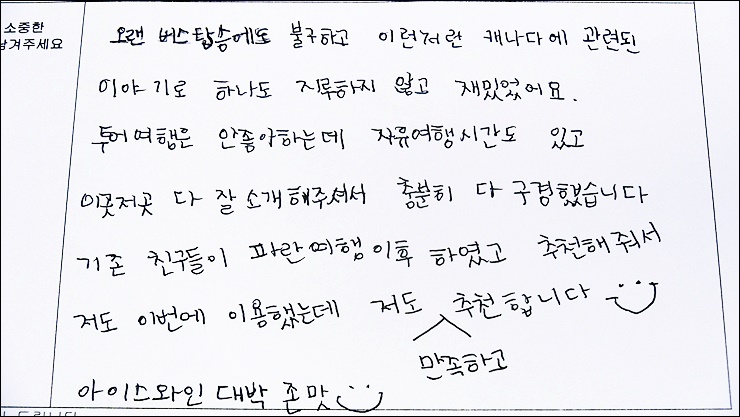 소중한
남겨주세요
오랜 버스탑승에도 불구하고 이런저런 캐나다에 관련된
이야기로 하나도 지루하지 않고 재밌었어요.
투어여행은 안좋아하는데 자유여행시간도 있고
이곳저곳 다 잘 소개해주셔서 충분히 다 구경했습니다
기존 친구들이 파란여행 이후 하였고 추천해줘서
저도 이번에 이용했는데 저도 추천합니다
만족하고
아이스와인 대박 존맛
드립니다